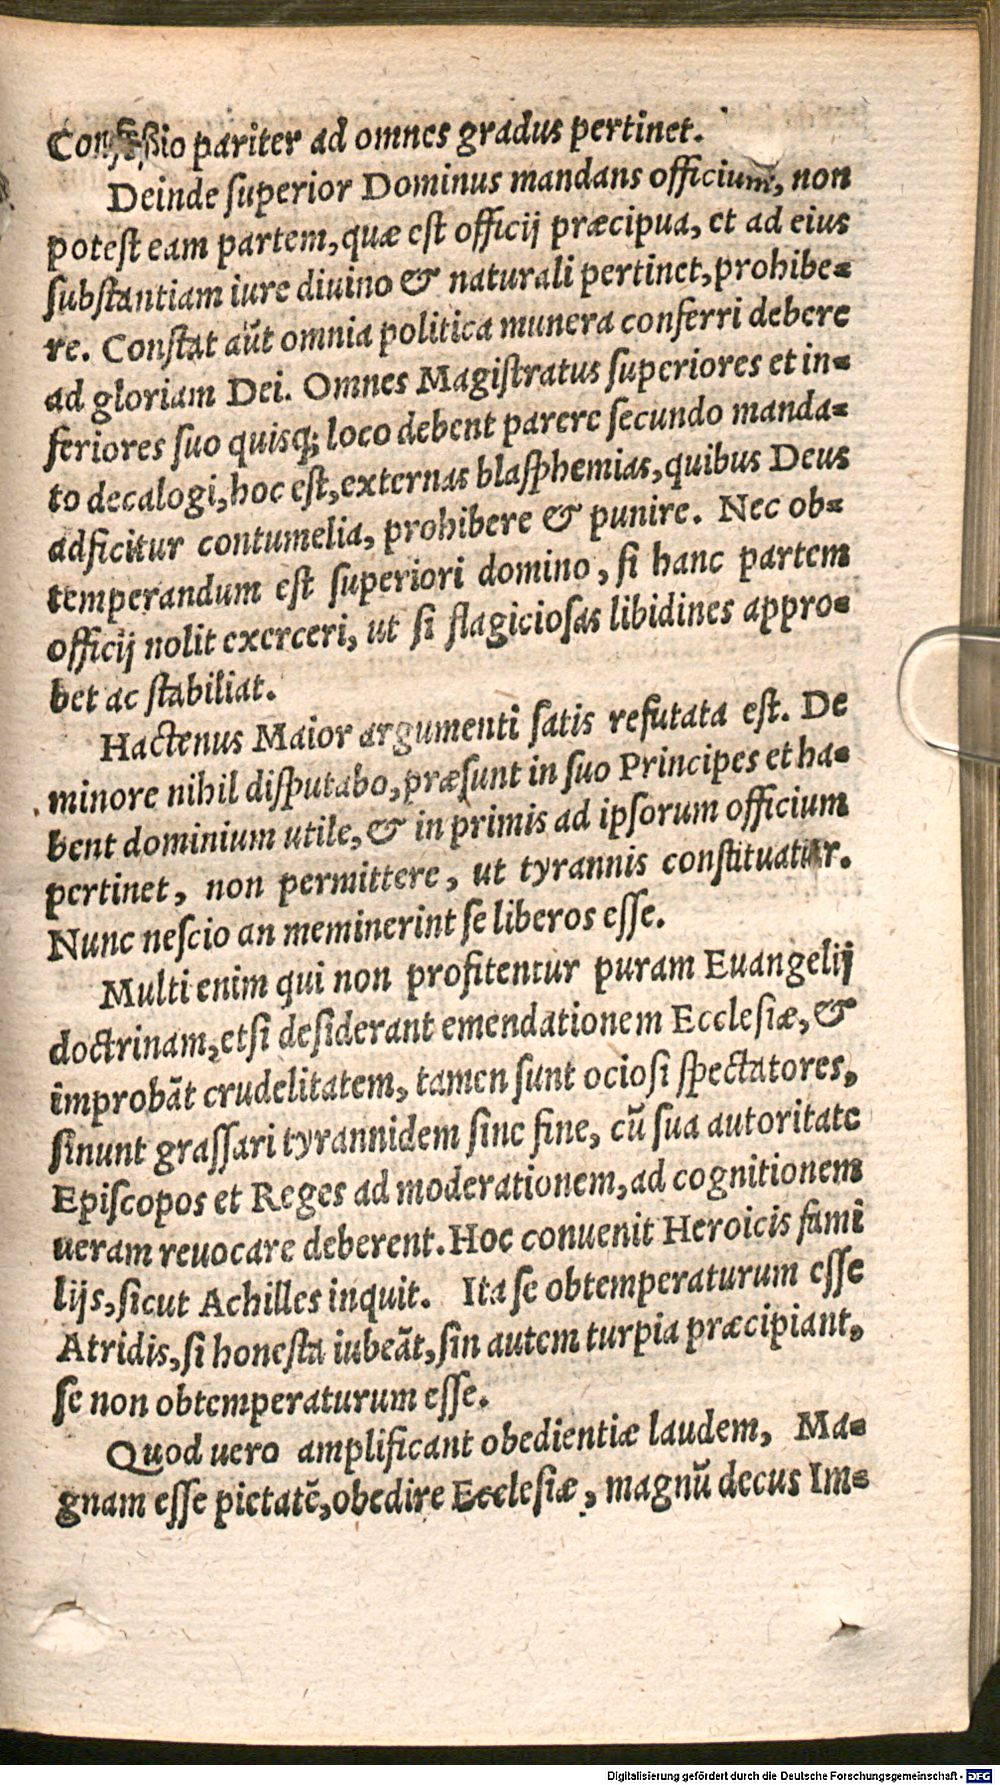 Confeſßio pariter ad omnes gradus pertinet.
Deinde ſuperior Dominus mandans officium, non
poteſt eam partem, quæ eſt officij præcipua, et ad eius
ſubſtantiam iure diuino & naturali pertinet, prohibe=
re. Conſtat aũt omnia politica munera conferri debere
ad gloriam Dei. Omnes Magiſtratus ſuperiores et in=
feriores ſuo quisq; loco debent parere ſecundo manda=
to decalogi, hoc eſt, externas blaſphemias, quibus Deus
adficitur contumelia, prohibere & punire. Nec ob=
temperandum eſt ſuperiori domino, ſi hanc partem
officij nolit exerceri, ut ſi flagicioſas libidines appro=
bet ac ſtabiliat.
Hactenus Maior argumenti ſatis refutata eſt. De
minore nihil diſputabo, præſunt in ſuo Principes et ha=
bent dominium utile, & in primis ad ipſorum officium
pertinet, non permittere, ut tyrannis conſtituatur.
Nunc neſcio an meminerint ſe liberos eſſe.
Multi enim qui non profitentur puram Euangelij
doctrinam, etſi deſiderant emendationem Eccleſiæ, &
improbãt crudelitatem, tamen ſunt ocioſi ſpectatores,
ſinunt graſſari tyrannidem ſine fine, cũ ſua autoritate
Epiſcopos et Reges ad moderationem, ad cognitionem
ueram reuocare deberent. Hoc conuenit Heroicis fami
lijs, ſicut Achilles inquit. Ita ſe obtemperaturum eſſe
Atridis, ſi honeſta iubeãt, ſin autem turpia præcipiant,
ſe non obtemperaturum eſſe.
Quod uero amplificant obedientiæ laudem, Ma=
gnam eſſe pietatẽ, obedire Eccleſiæ, magnũ decus Im=
Digitalisierung gefördert durch die Deutsche Forschungsgemeinschaft - DFG